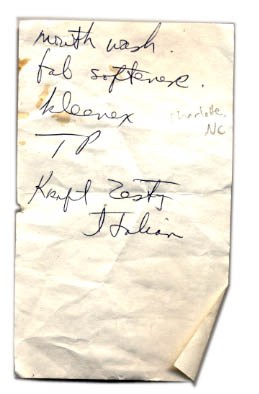 mouth wash.
fab softener.
Kleenex
Charlotte,
NC
TP
Kraft Zesty
Italian